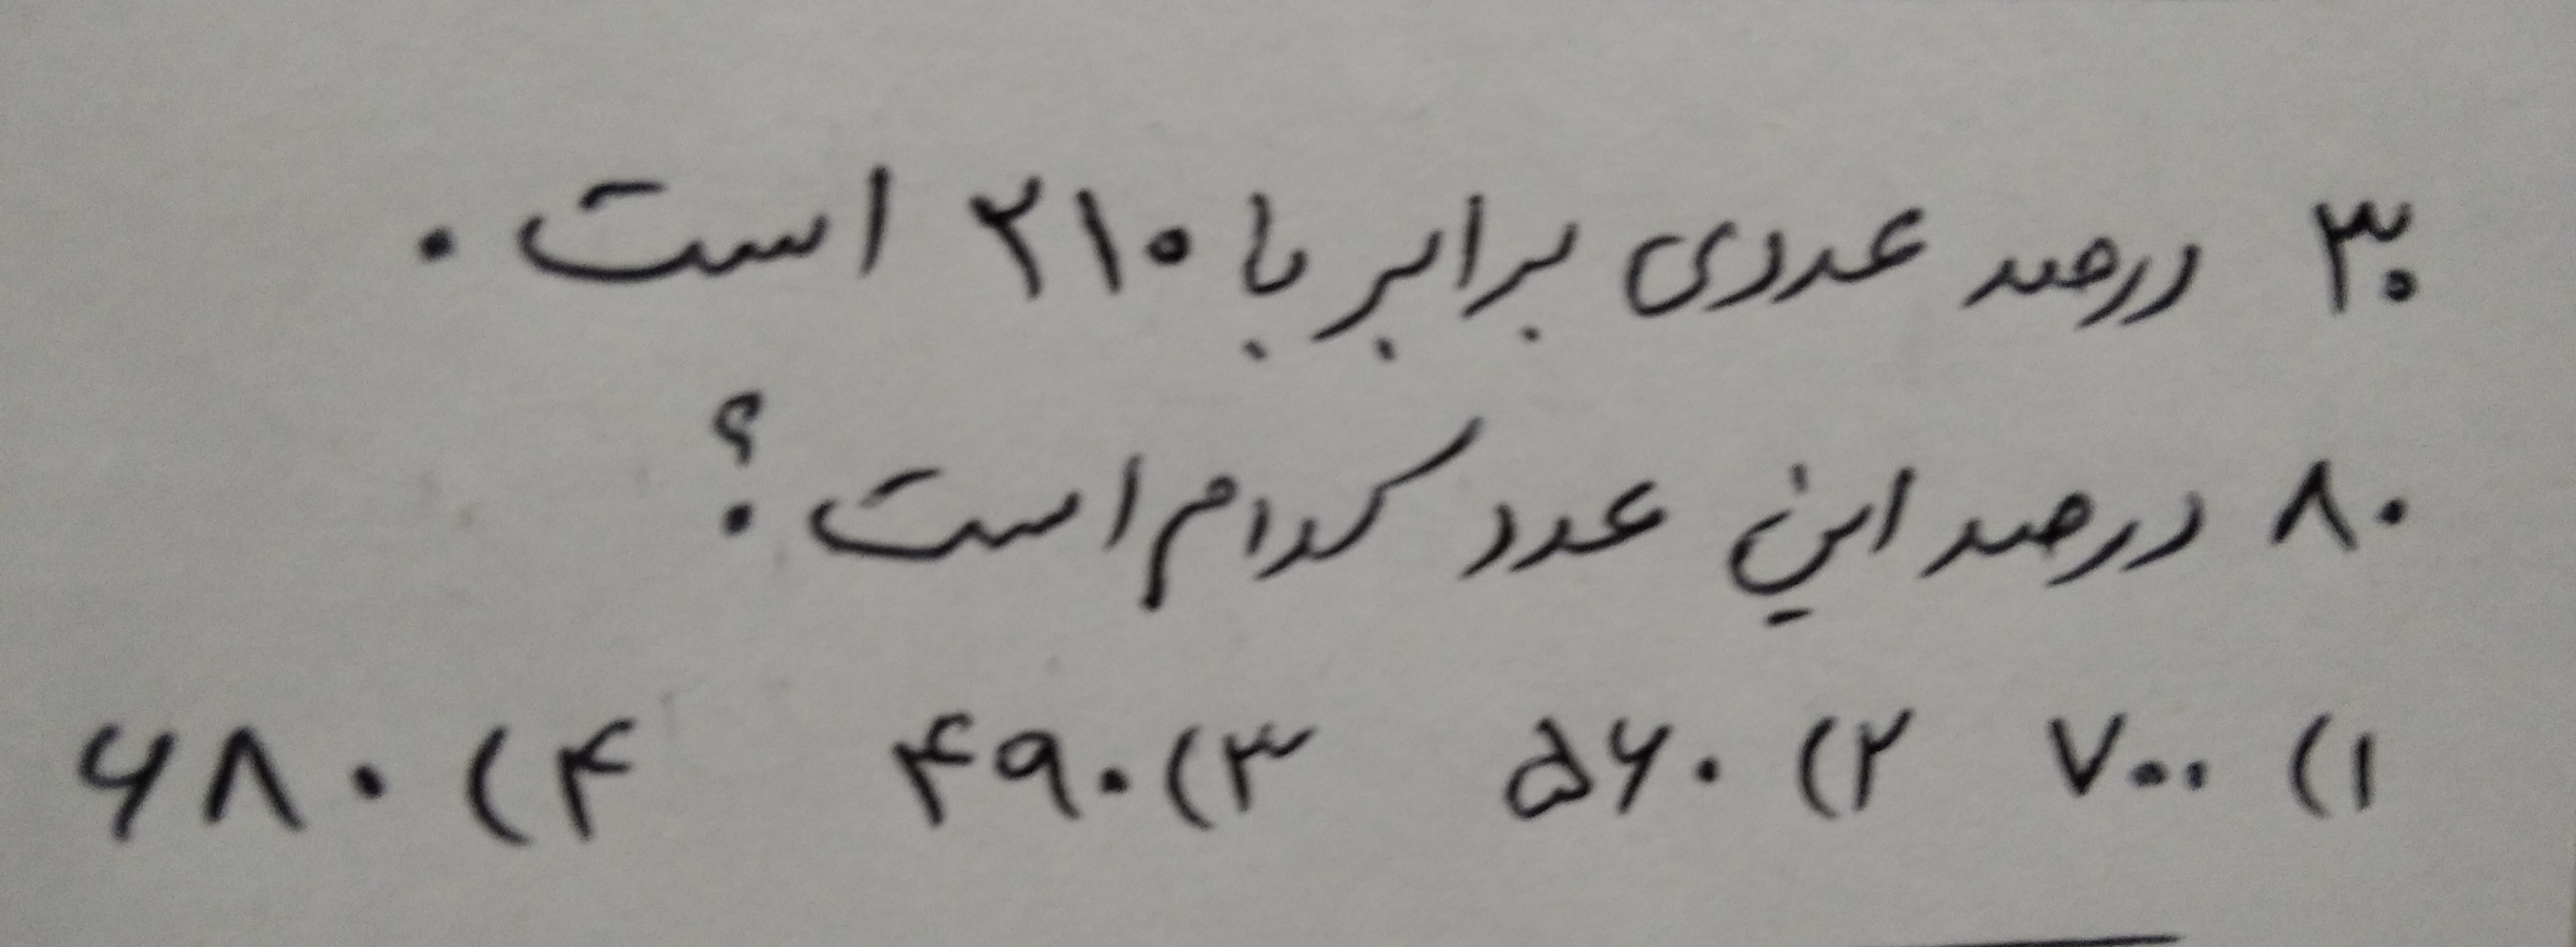 ۳۰ درصد عددی برابر با ۲۱۰ است.
۸۰ درصد این عدد کدام است؟
۱) ۷۰۰ ۲) ۵۶۰ ۳) ۴۹۰ ۴) ۶۸۰